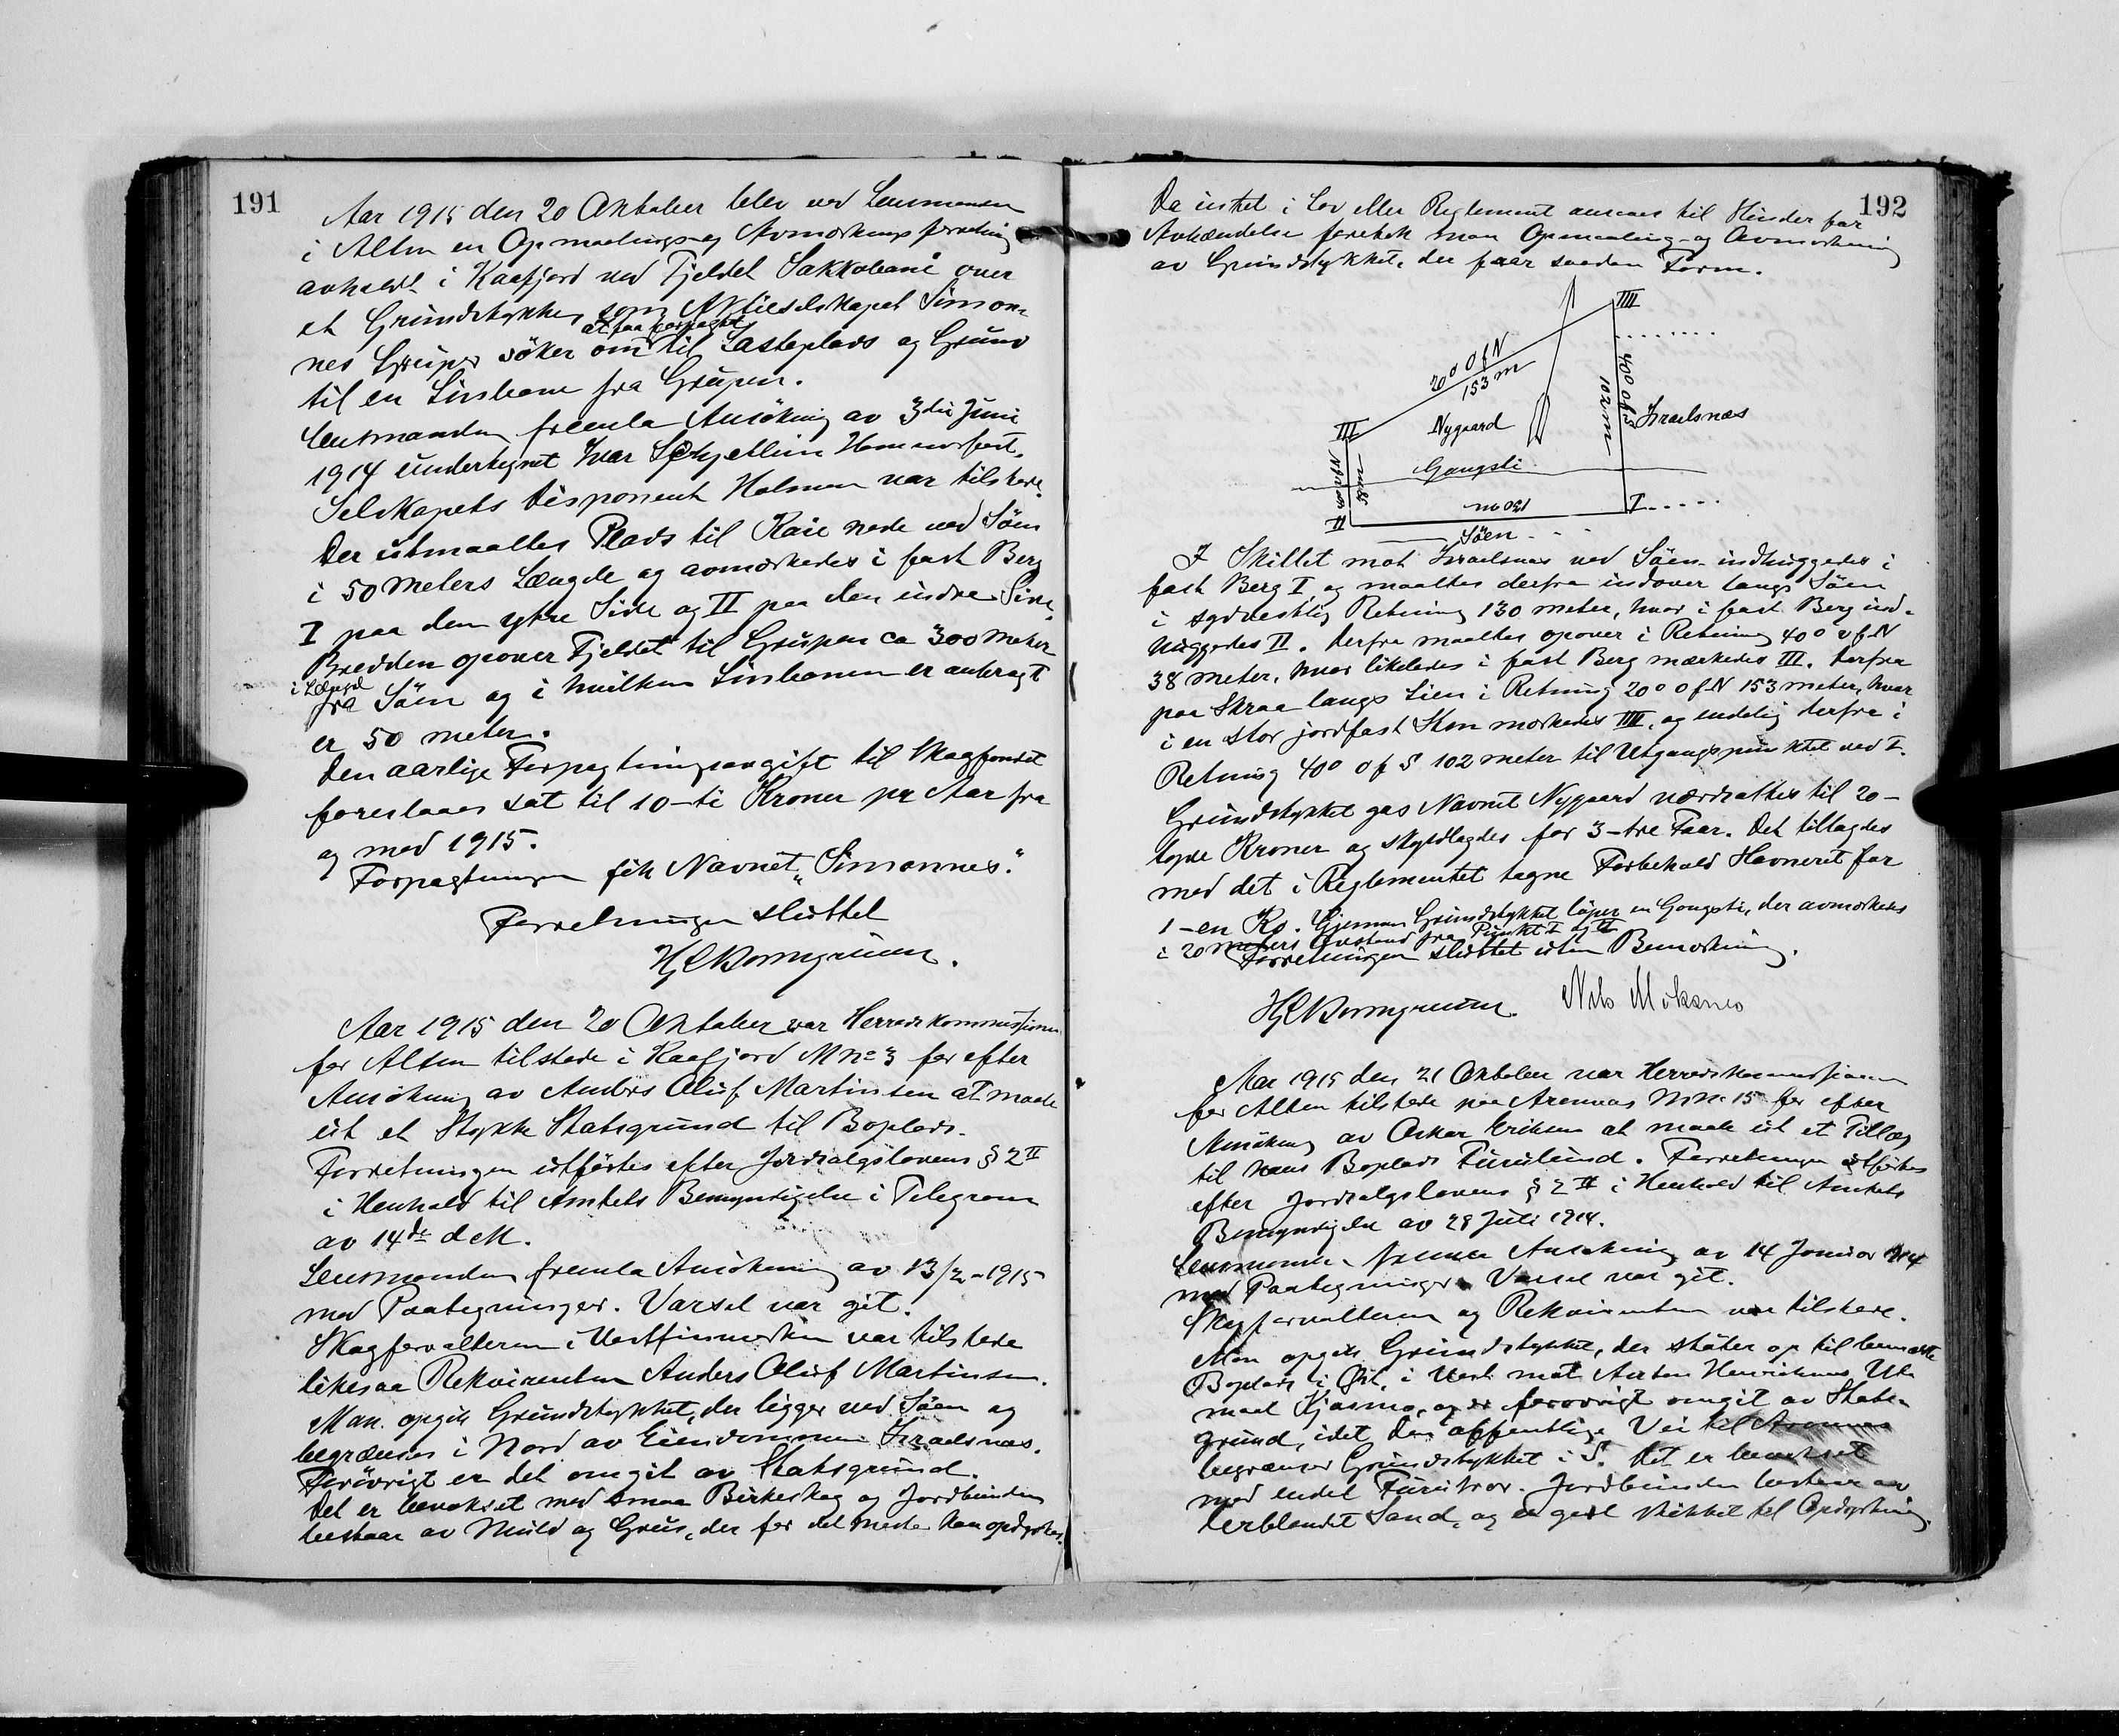 191
Aar 1915 den 20 Oktober blev ved Lensmanden
i Alten en Opmaalings og Avmerkings forretning
avholdt i Kaafjord ved Fjeldet Sakkobani over
et Grundstykke, som Aktieselskapet Simon-
nes Gruper søker om at faa forpagtet til Lasteplads og Grund
til en Linbane fra Grupen.
Lensmanden fremla Ansökning av 3die Juni
1914 undertegnet Ivar Hammerfest.
Selskapets Disponent Holmen var tilstede.
Der utmaaltes Plads til Kaie nede ved Söen
i 50 Meters Længde og avmerkedes i fast Berg
I paa den ytre Side og II paa den indre Side.
Bredden opover Fjeldet til Grupen ca 300 Meter
i Længde fra Söen og i hvilken Linbanen er anbragt
er 50 meter.
Den aarlige Forpagtningsavgift til Skogfondet
foreslaaes sat til 10 - ti Kroner pr Aar fra
og med 1915.
Forpagtningen fik Navnet "Simonnes".
Forretningen sluttet
Aar 1915 den 20 Oktober var Herredskommissionen
for Alten tilstede i Kaafjord M No 3 for efter
Ansökning av Anders Oluf Martinsen at maale
ut et Stykke Statsgrund til Boplads.
Forretningen utförtes efter Jordsalgslovens § 2 II
i Henhold til Amtets Bemyndigelse i Telegram
av 14de d M.
Lensmanden fremla Ansökning av 13/2 - 1915
med Paategninger. Varsel var git.
Skogforvalteren i Vestfinmarken var tilstede
likesaa Rekvirenten Anders Oluf Martinsen.
Man opgik Grundstykket, der ligger ved Söen og
begrænses i Nord av Eiendommen Israelsnæs.
Forövrigt er det omgit av Statsgrund.
Det er bevokset med smaa Birkeskog og Jordbunden
bestaar av Muld og Grus, der for det meste kan opdyrkes.
192
Da intet i Lov eller Reglement ansees til Hinder for
Avhændelse foretok man Opmaaling- og Avmerkning
av Grundstykket, der faar saadan Form.
IIII
20° O f N
153 m
40° O f S
102 m
Israelsnæs
III
Nygaard
Gangsti
38 m
130 m
II
I
Söen
I Skillet mot Israelsnæs ved Söen indhuggedes i
fast Berg I, og maaltes derfra indover langs Söen
i sydvestlig Retning 130 meter, hvor i fast Berg ind-
huggedes II. Derfra maaltes opover i Retning 40° v f N
38 meter, hvor likeledes i fast Berg mærkedes III. Derfra
paa Skraa langs Lien i Retning 20° O f N 153 meter, hvor
i en stor jordfast Sten merkedes IIII, og endelig derfra i
Retning 40° O f S 102 meter til Utgangspunktet ved I.
Grundstykket gas Navnet Nygaard værdsattes til 20 -
tyve Kroner og skyldlagdes for 3 - tre Ører. Det tillagdes
med det i Reglementet tagne Forbehold Havneret for
1 - en Ko. Gjennem Grundstykket löper en Gangsti, der avmerkedes
i 20 meters Avstand fra Punkt I og II
Forretningen sluttet uten Bemerkning.
Nils Moksnes
Aar 1915 den 21 Oktober var Herredskommissionen
for Alten tilstede paa Aronnæs M No 15 for efter
Ansökning av Oskar Eriksen at maale ut et Tillæg
til hans Boplads Furulund. Forretningen utförtes
efter Jordsalgslovens § 2 II i Henhold til Amtets
Bemyndigelse av 28 Juli 1914.
Lensmanden fremla Ansökning av 14 Januar 1914
med Paategninger. Varsel var git.
Skogforvalteren og Rekvirenten var tilstede.
Man opgik Grundstykket, der støter op til
Boplads i Öst, i Vest mot Anton Henriksens Ut-
maal Kjosmo, og er forøvrigt omgit av Stats-
grund, idet den offentlige Vei til Aronnes
begrænser Grundstykket i S. Det er bevokset
med endel Furutrær. Jordbunden bestaar av
lerblandet Sand, og er godt skikket til Opdyrkning.